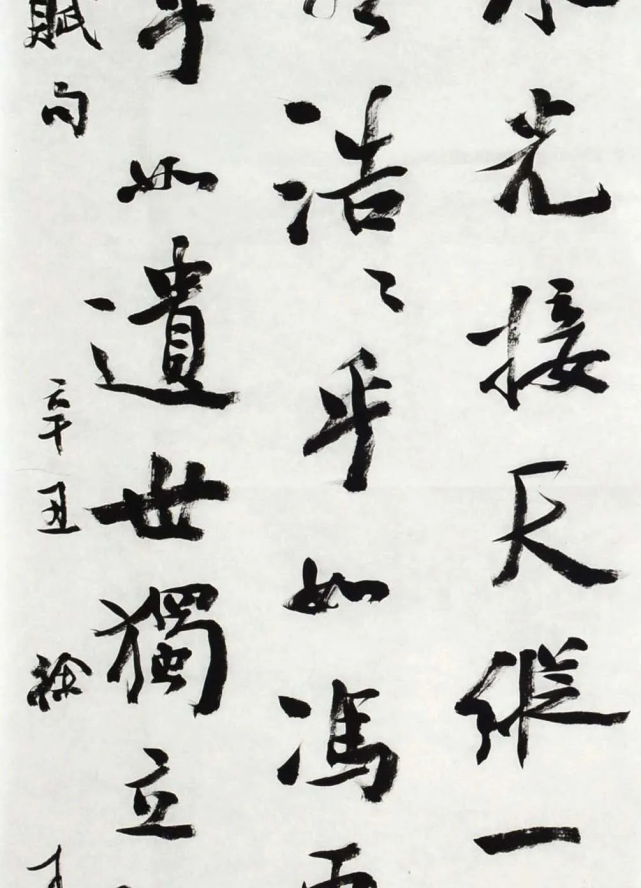 水光接天縱一
浩〻乎如馮
乎如遺世獨立
賦句 辛丑 徐